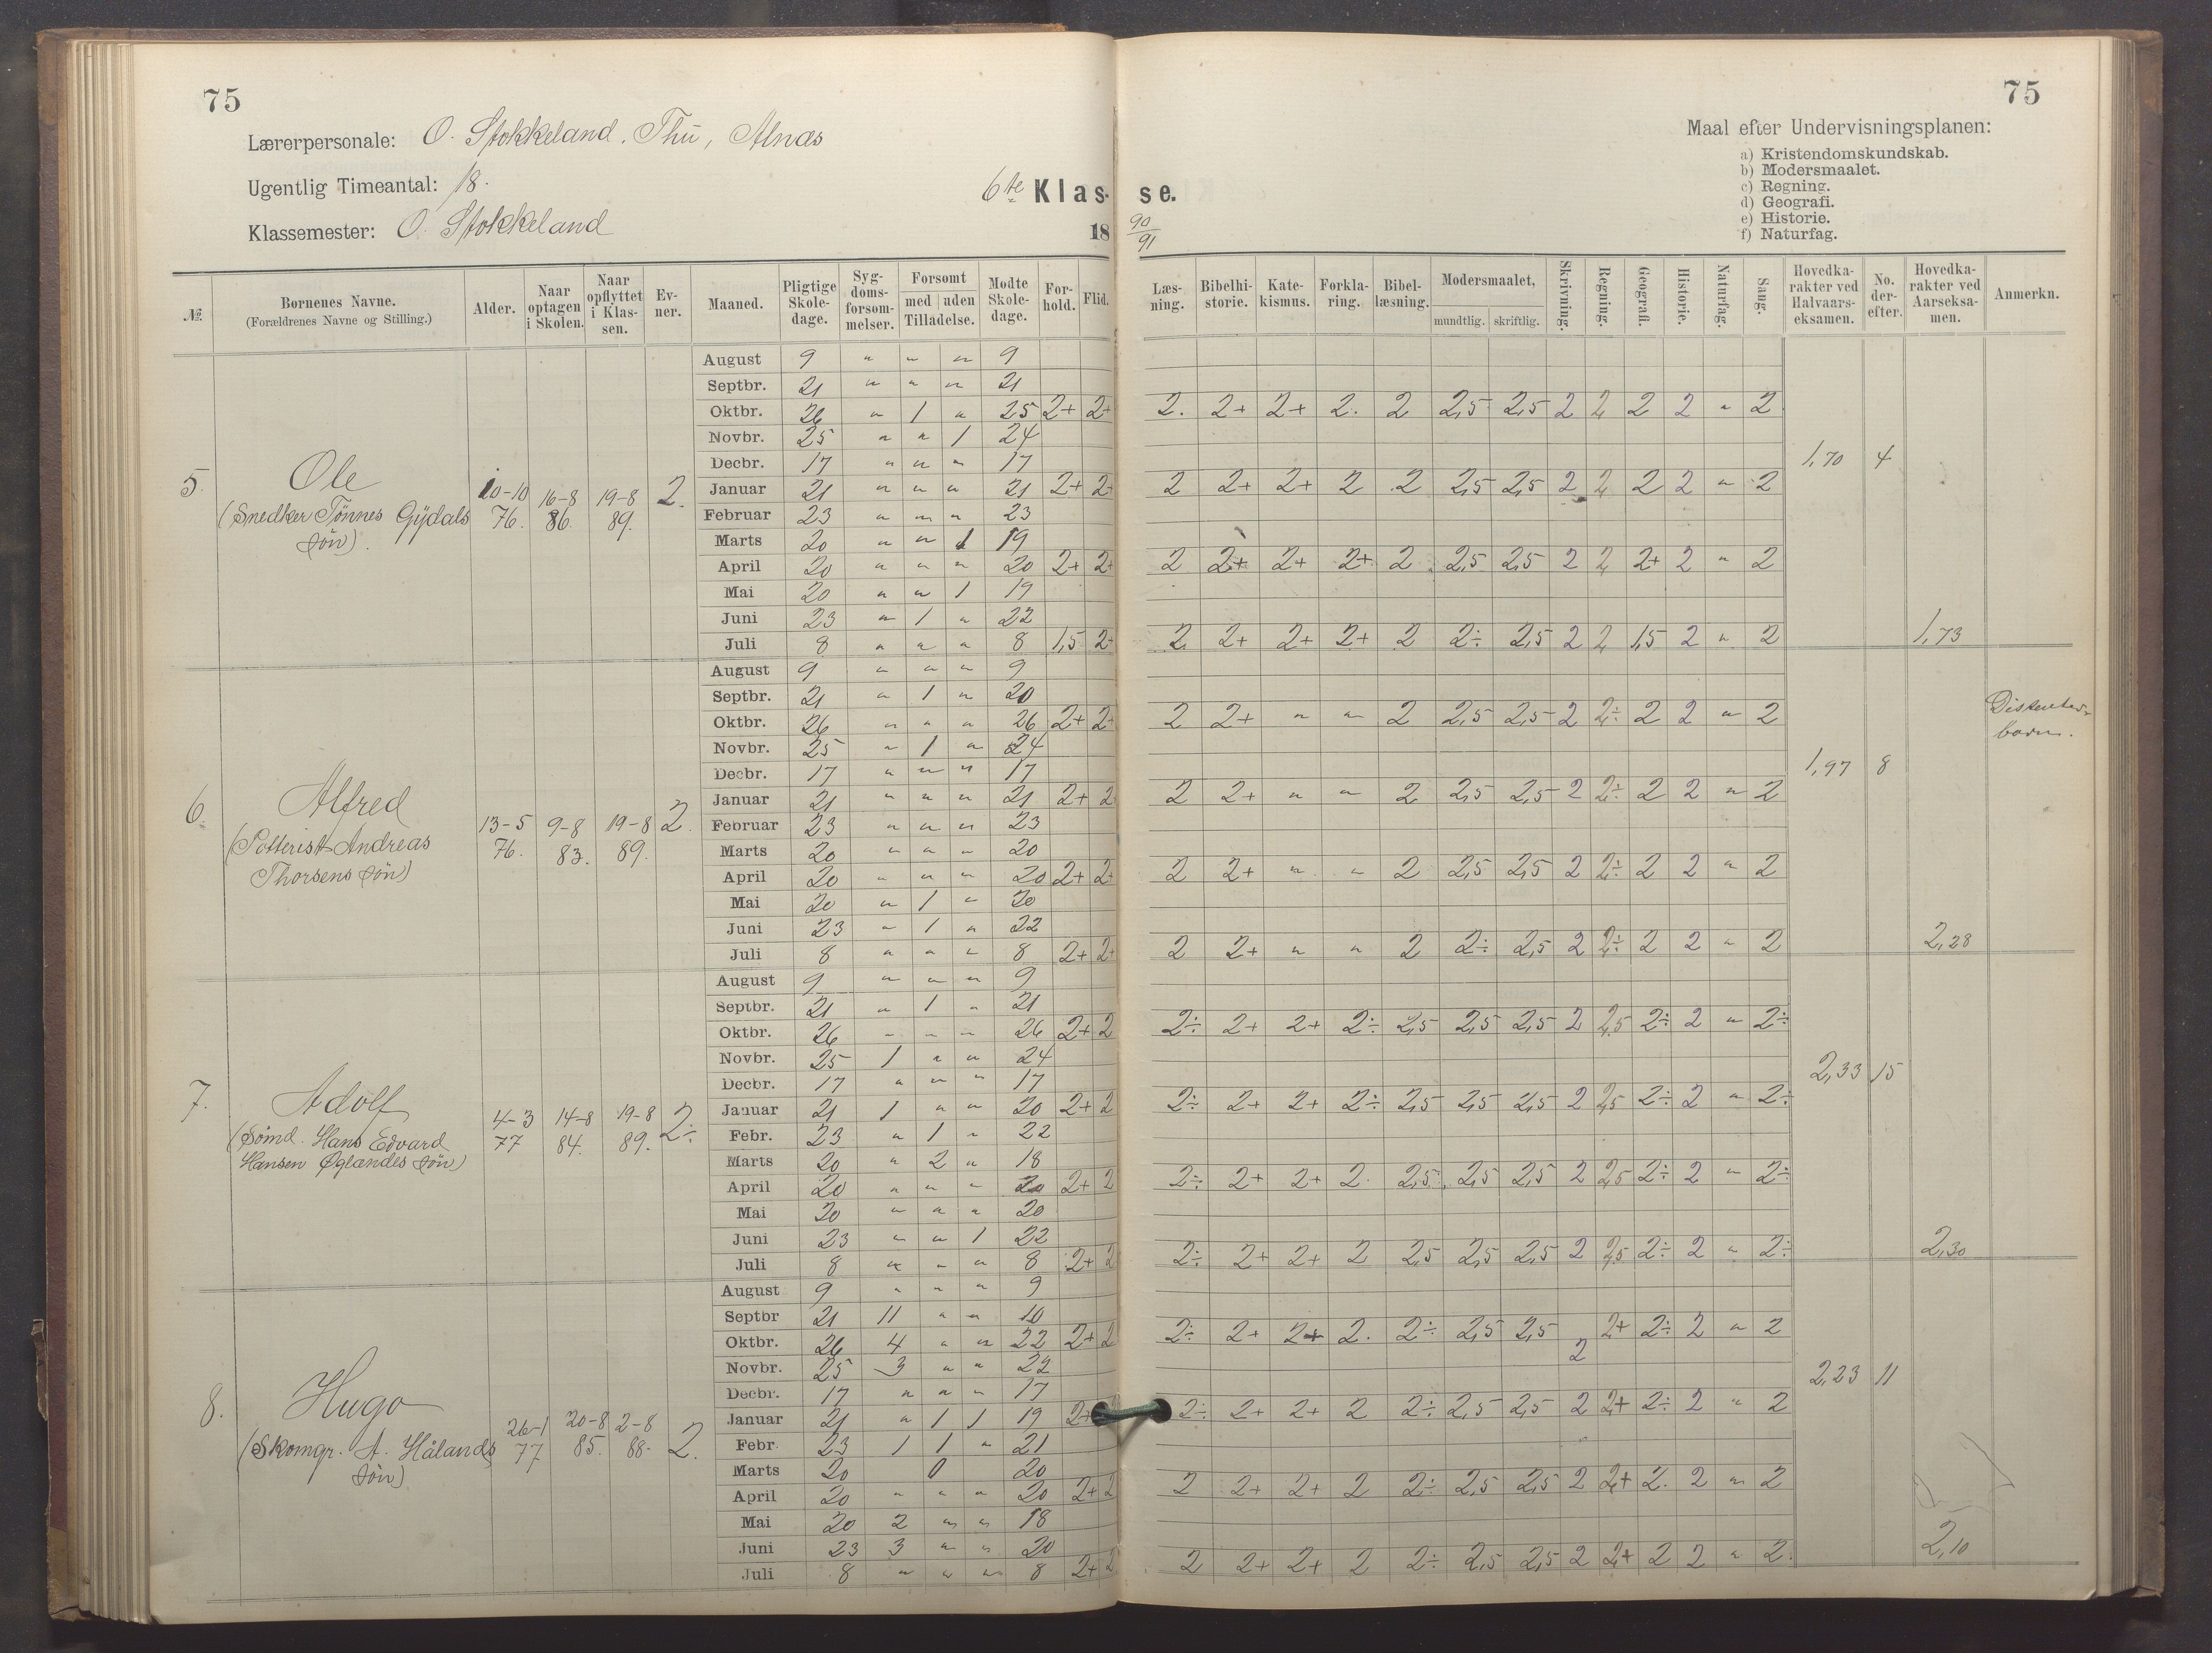 75
75
Lærerpersonale: O. Stokkeland, Thu, Alnæs
Ugentlig Timeantal: 18.
Klassemester: O. Stokkeland
6te Klasse.
18 90/91
Maal efter Undervisningsplanen:
a) Kristendomskundskab.
b) Modersmaalet.
c) Regning.
d) Geografi.
e) Historie.
f) Naturfag.
№. Børnenes Navne. (Forældrenes Navne og Stilling.) Alder. Naar optagen i Skolen. Naar opflyttet i Klassen. Evner. Maaned. Pligtige Skoledage. Sygdomsforsømmelser. Forsømt med uden Tilladelse. Mødte Skoledage. Forhold. Flid. Læsning. Bibelhistorie. Katekismus. Forklaring. Bibellæsning. Modersmaalet, mundtlig. skriftlig. Skrivning. Regning. Geografi. Historie. Naturfag. Sang. Hovedkarakter ved Halvaarseksamen. No. derefter. Hovedkarakter ved Aarseksamen. Anmerkn.
5. Ole (Snedker Tønnes Gýdals søn). 10-10 76. 16-8 86. 19-8 89. 2.
August 9 " " " 9
Septbr. 21 " " " 21
Oktbr. 26 " 1 " 25 2+ 2+ 2. 2+ 2+ 2. 2 2,5 2,5 2 2 2 2 " 2
Novbr. 25 " " 1 24
Decbr. 17 " " " 17 1,70 4
Januar 21 " " " 21 2+ 2+ 2 2+ 2+ 2 2 2,5 2,5 2 2 2 2 " 2
Februar 23 " " " 23
Marts 20 " " 1 19
April 20 " " " 20 2+ 2+ 2 2+ 2+ 2+ 2 2,5 2,5 2 2 2+ 2 " 2
Mai 20 " " 1 19
Juni 23 " 1 " 22
Juli 8 " " " 8 1,5 2+ 2 2+ 2+ 2+ 2 2÷ 2,5 2 2 1,5 2 " 2 1,73
6. Alfred (Potterist Andreas Thorsens søn) 13-5 76. 9-8 83. 19-8 89. 2.
August 9 " " " 9
Septbr. 21 " 1 " 20
Oktbr. 26 " " " 26 2+ 2+ 2 2+ " " 2 2,5 2,5 2 2÷ 2 2 " 2 Dissenterbarn.
Novbr. 25 " 1 " 24
Decbr. 17 " " " 17 1,97 8
Januar 21 " " " 21 2+ 2 2 2+ " " 2 2,5 2,5 2 2÷ 2 2 " 2
Februar 23 " " " 23
Marts 20 " " " 20
April 20 " " " 20 2+ 2+ 2 2+ " " 2 2,5 2,5 2 2÷ 2 2 " 2
Mai 20 " 1 " 20
Juni 23 " 1 " 22
Juli 8 " " " 8 2+ 2+ 2 2+ " " 2 2÷ 2,5 2 2÷ 2 2 " 2 2,28
7. Adolf (Sømd. Hans Edvard Hansen Øglændes søn) 4-3 77 14-8 84. 19-8 89. 2÷
August 9 " " " 9
Septbr. 21 " 1 " 21
Oktbr. 26 " " " 26 2+ 2 2÷ 2+ 2+ 2÷ 2,5 2,5 2,5 2 2,5 2÷ 2 " 2÷
Novbr. 25 1 " " 24
Decbr. 17 " " " 17 2,33 15
Januar 21 1 " " 20 2+ 2 2÷ 2+ 2+ 2÷ 2,5 2,5 2,5 2 2,5 2÷ 2 " 2÷
Febr. 23 " 1 " 22
Marts 20 " 2 " 18
April 20 " " " 20 2+ 2 2÷ 2+ 2+ 2. 2,5 2,5 2,5 2 2,5 2÷ 2 " 2÷
Mai 20 " " " 20
Juni 23 " " 1 22
Juli 8 " " " 8 2+ 2 2÷ 2+ 2+ 2 2,5 2,5 2,5 2 2,5 2÷ 2 " 2÷ 2,30
8. Hugo (Skomgr. A. Hålands søn) 26-1 77 20-8 85. 2-8 88. 2.
August 9 " " " 9
Septbr 21 11 " " 10
Oktbr. 26 4 " " 22 2+ 2 2÷ 2+ 2+ 2. 2÷ 2,5 2,5 2 2+ 2÷ 2 " 2
Novbr. 25 3 " " 22
Decbr. 17 " " " 17 2,23 11
Januar 21 " 1 1 19 2+ 2÷ 2+ 2+ 2 2÷ 2,5 2,5 2 2+ 2÷ 2 " 2
Febr. 23 1 1 " 21
Marts 20 0 20
April 20 " " " 20 2+ 2 2 2+ 2+ 2 2÷ 2,5 2,5 2 2+ 2. 2 " 2
Mai 20 2 " " 18
Juni 23 3 " " 20
Juli 8 " " " 8 2+ 2 2 2+ 2+ 2 2÷ 2,5 2,5 2 2+ 2 2 " 2 2,10